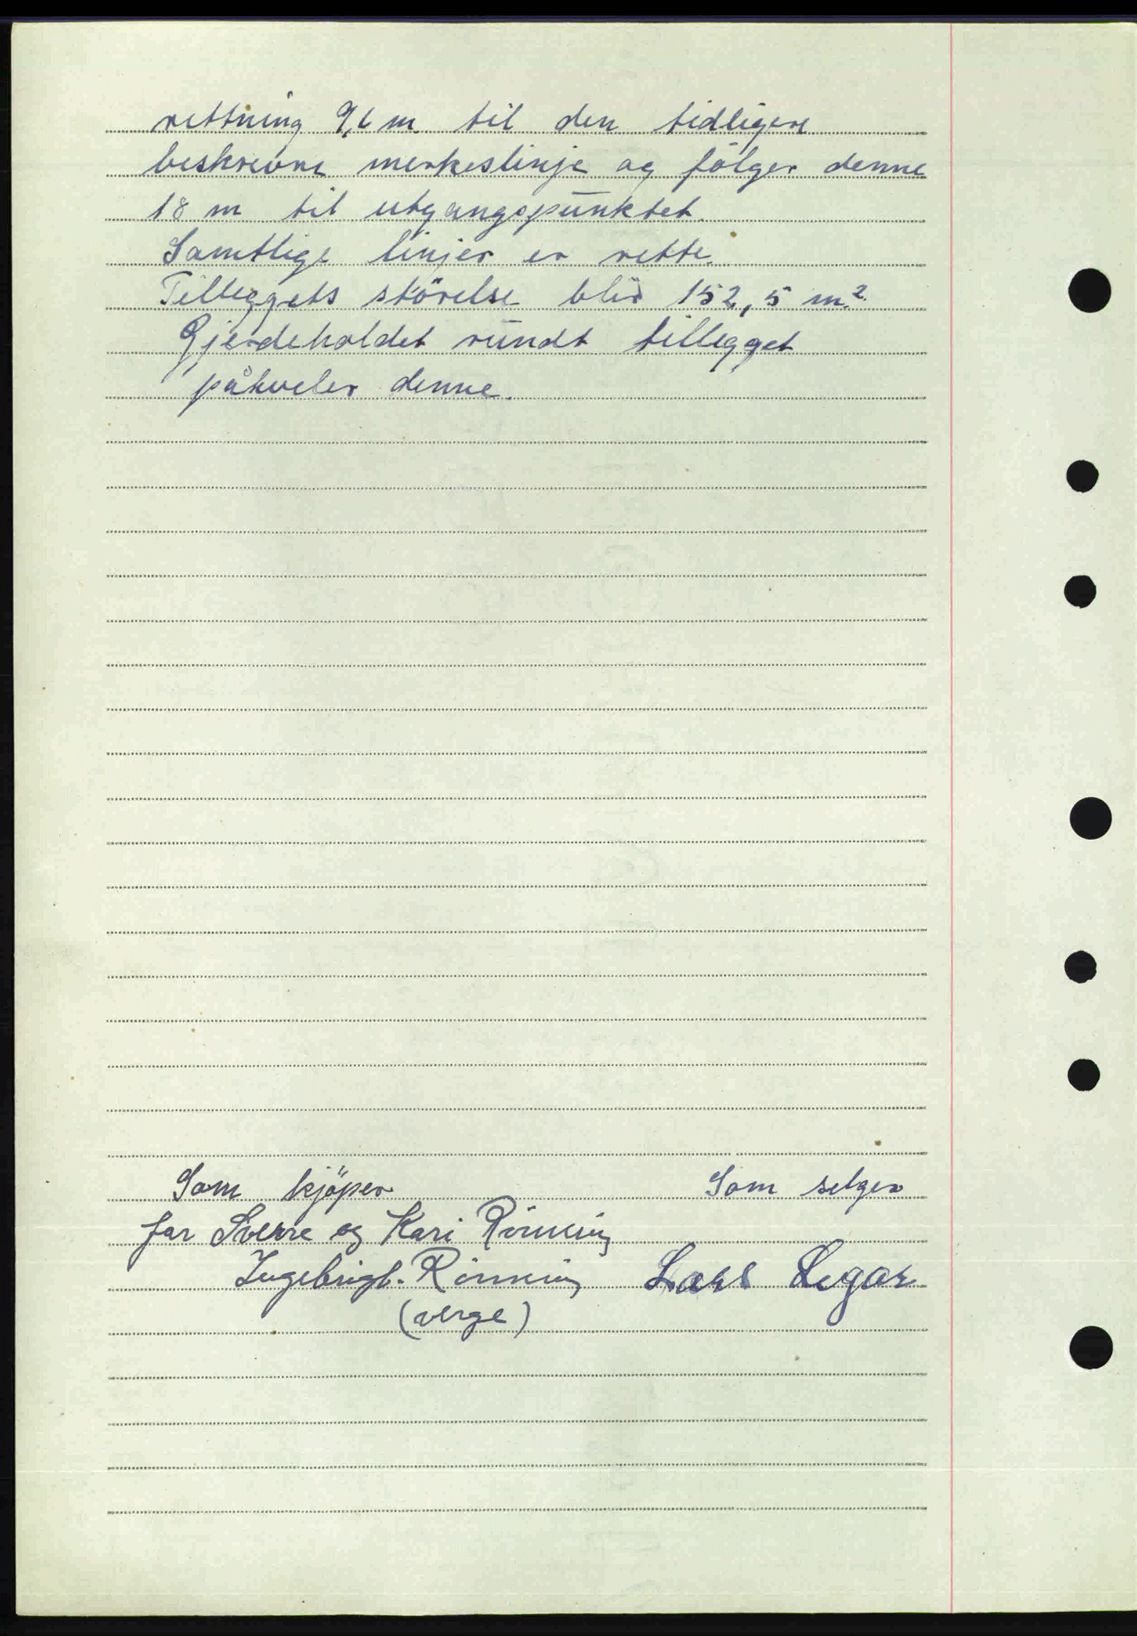 rettning 9,6 m til den tidligere
beskrevne merkeslinje og følger denne
18 m til utgangspunktet.
Samtlige linjer er rette.
Tilleggets störelse blir 152,5 m².
Gjerdeholdet rundt tillegget
påhviler denne.
Som kjöper
for Sverre og Kari Rönning
Som selger
Ingebrigt Rönning
(verge)
Lars